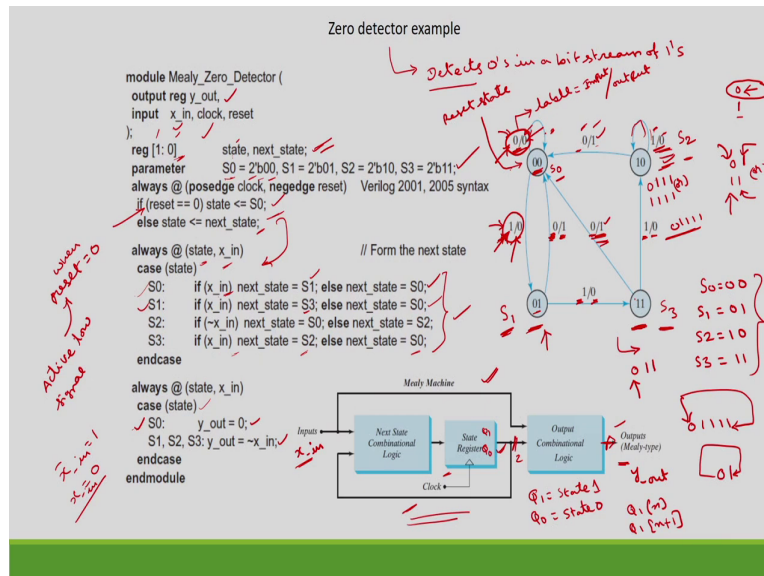 Zero detector example
Detects 0's in a bit stream of 1's
module Mealy_Zero_Detector (
output reg y_out,
input x_in, clock, reset
);
reg [1: 0] state, next_state;
parameter S0 = 2'b00, S1 = 2'b01, S2 = 2'b10, S3 = 2'b11;
always @ (posedge clock, negedge reset) Verilog 2001, 2005 syntax
if (reset == 0) state <= S0;
else state <= next_state;
always @ (state, x_in) // Form the next state
case (state)
S0: if (x_in) next_state = S1; else next_state = S0;
S1: if (x_in) next_state = S3; else next_state = S0;
S2: if (~x_in) next_state = S0; else next_state = S2;
S3: if (x_in) next_state = S2; else next_state = S0;
endcase
always @ (state, x_in)
case (state)
S0: y_out = 0;
S1, S2, S3: y_out = ~x_in;
endcase
endmodule
when
reset = 0
Active low
signal
x_in = 1
x_in = 0
Reset state
label = Input/output
0/0
0/1
1/0
S2
00
S0
10
0111
1111
1/0
0/1
0/1
1/0
01111
S1
01
1/0
11
S3
011
0
1
0
11
S0 = 00
S1 = 01
S2 = 10
S3 = 11
01111
01
Mealy Machine
Inputs
x_in
Next State
Combinational
Logic
State
Register
Q1
Q0
2
Clock
Output
Combinational
Logic
Outputs
(Mealy-type)
y_out
Q1 = state 1
Q0 = state 0
Q1(n)
Q1[n+1]